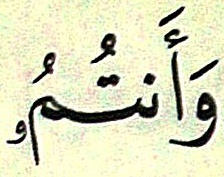 وَأَنتُمُۥ